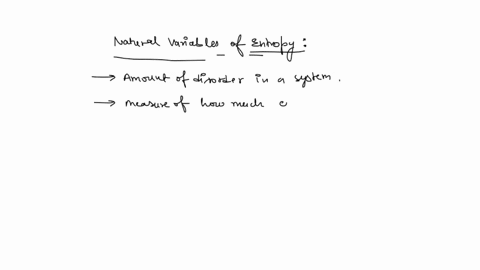 Natural Variables of Entropy :
→ Amount of disorder in a system .
→ measure of how much e